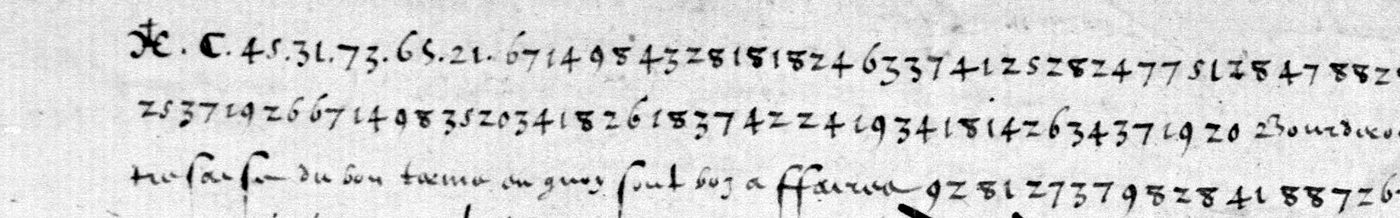 C. 45.31.73.65.21. 6714984328181824633741252824775128478828
2537192667149835203418261837422419341814263437192 0 Bourdeo
du bon terme en quoy sont voz affaires 9281273798284188726